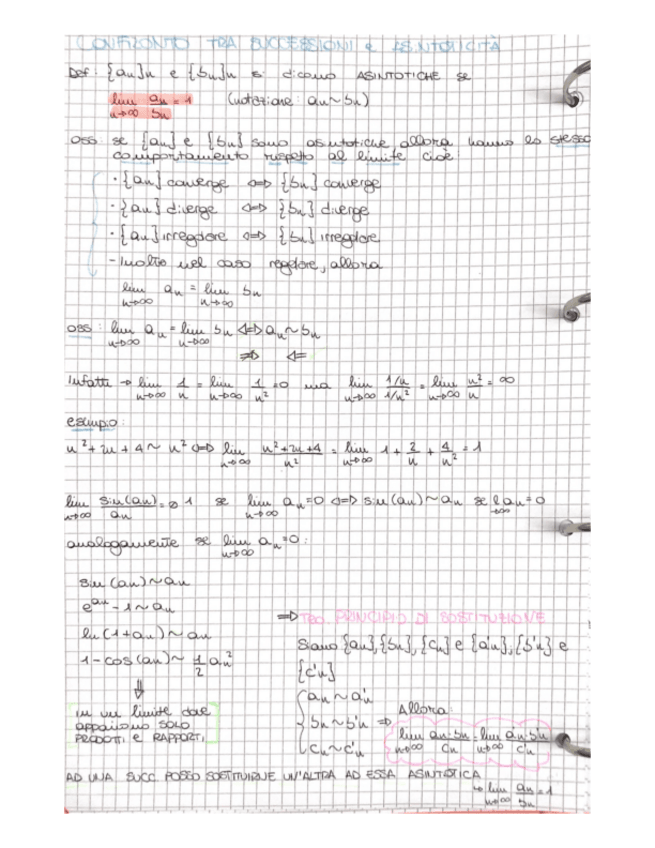 CONFRONTO TRA SUCCESSIONI e ASINTOTICITÀ
Def: {an}n e {bn}n si dicono ASINTOTICHE se
lim n→∞ an/bn = 1 (notazione: an~bn)
oss: se {an} e {bn} sono asintotiche allora hanno lo stesso
comportamento rispetto al limite cioè
· {an} converge ⇔ {bn} converge
· {an} diverge ⇔ {bn} diverge
· {an} irregolare ⇔ {bn} irregolare
- Inoltre nel caso regolare, allora
lim n→∞ an = lim n→∞ bn
oss: lim n→∞ an = lim n→∞ bn ⇔ an~bn
⇏ ⇐
Infatti → lim n→∞ 1/n = lim n→∞ 1/n² = 0 ma lim n→∞ (1/n)/(1/n²) = lim n→∞ n²/n = ∞
esempio:
n²+2n+4 ~ n² ⇔ lim n→∞ (n²+2n+4)/n² = lim n→∞ 1 + 2/n + 4/n² = 1
lim n→∞ sin(an)/an = 1 se lim n→∞ an=0 ⇔ sin(an)~an se an→0
analogamente se lim n→∞ an=0:
sin(an)~an
e^an - 1 ~ an
ln(1+an)~an
1-cos(an)~ 1/2 an²
⇓
in un limite dove
appaiono SOLO
PRODOTTI e RAPPORTI,
⇒ TEO. PRINCIPIO DI SOSTITUZIONE
Siano {an},{bn},{cn} e {a'n},{b'n} e
{c'n}
an ~ a'n
bn ~ b'n ⇒
cn ~ c'n
Allora:
lim n→∞ an·bn/cn = lim n→∞ a'n·b'n/c'n
AD UNA SUCC. POSSO SOSTITUIRNE UN'ALTRA AD ESSA ASINTOTICA
↳ lim n→∞ an/bn = 1